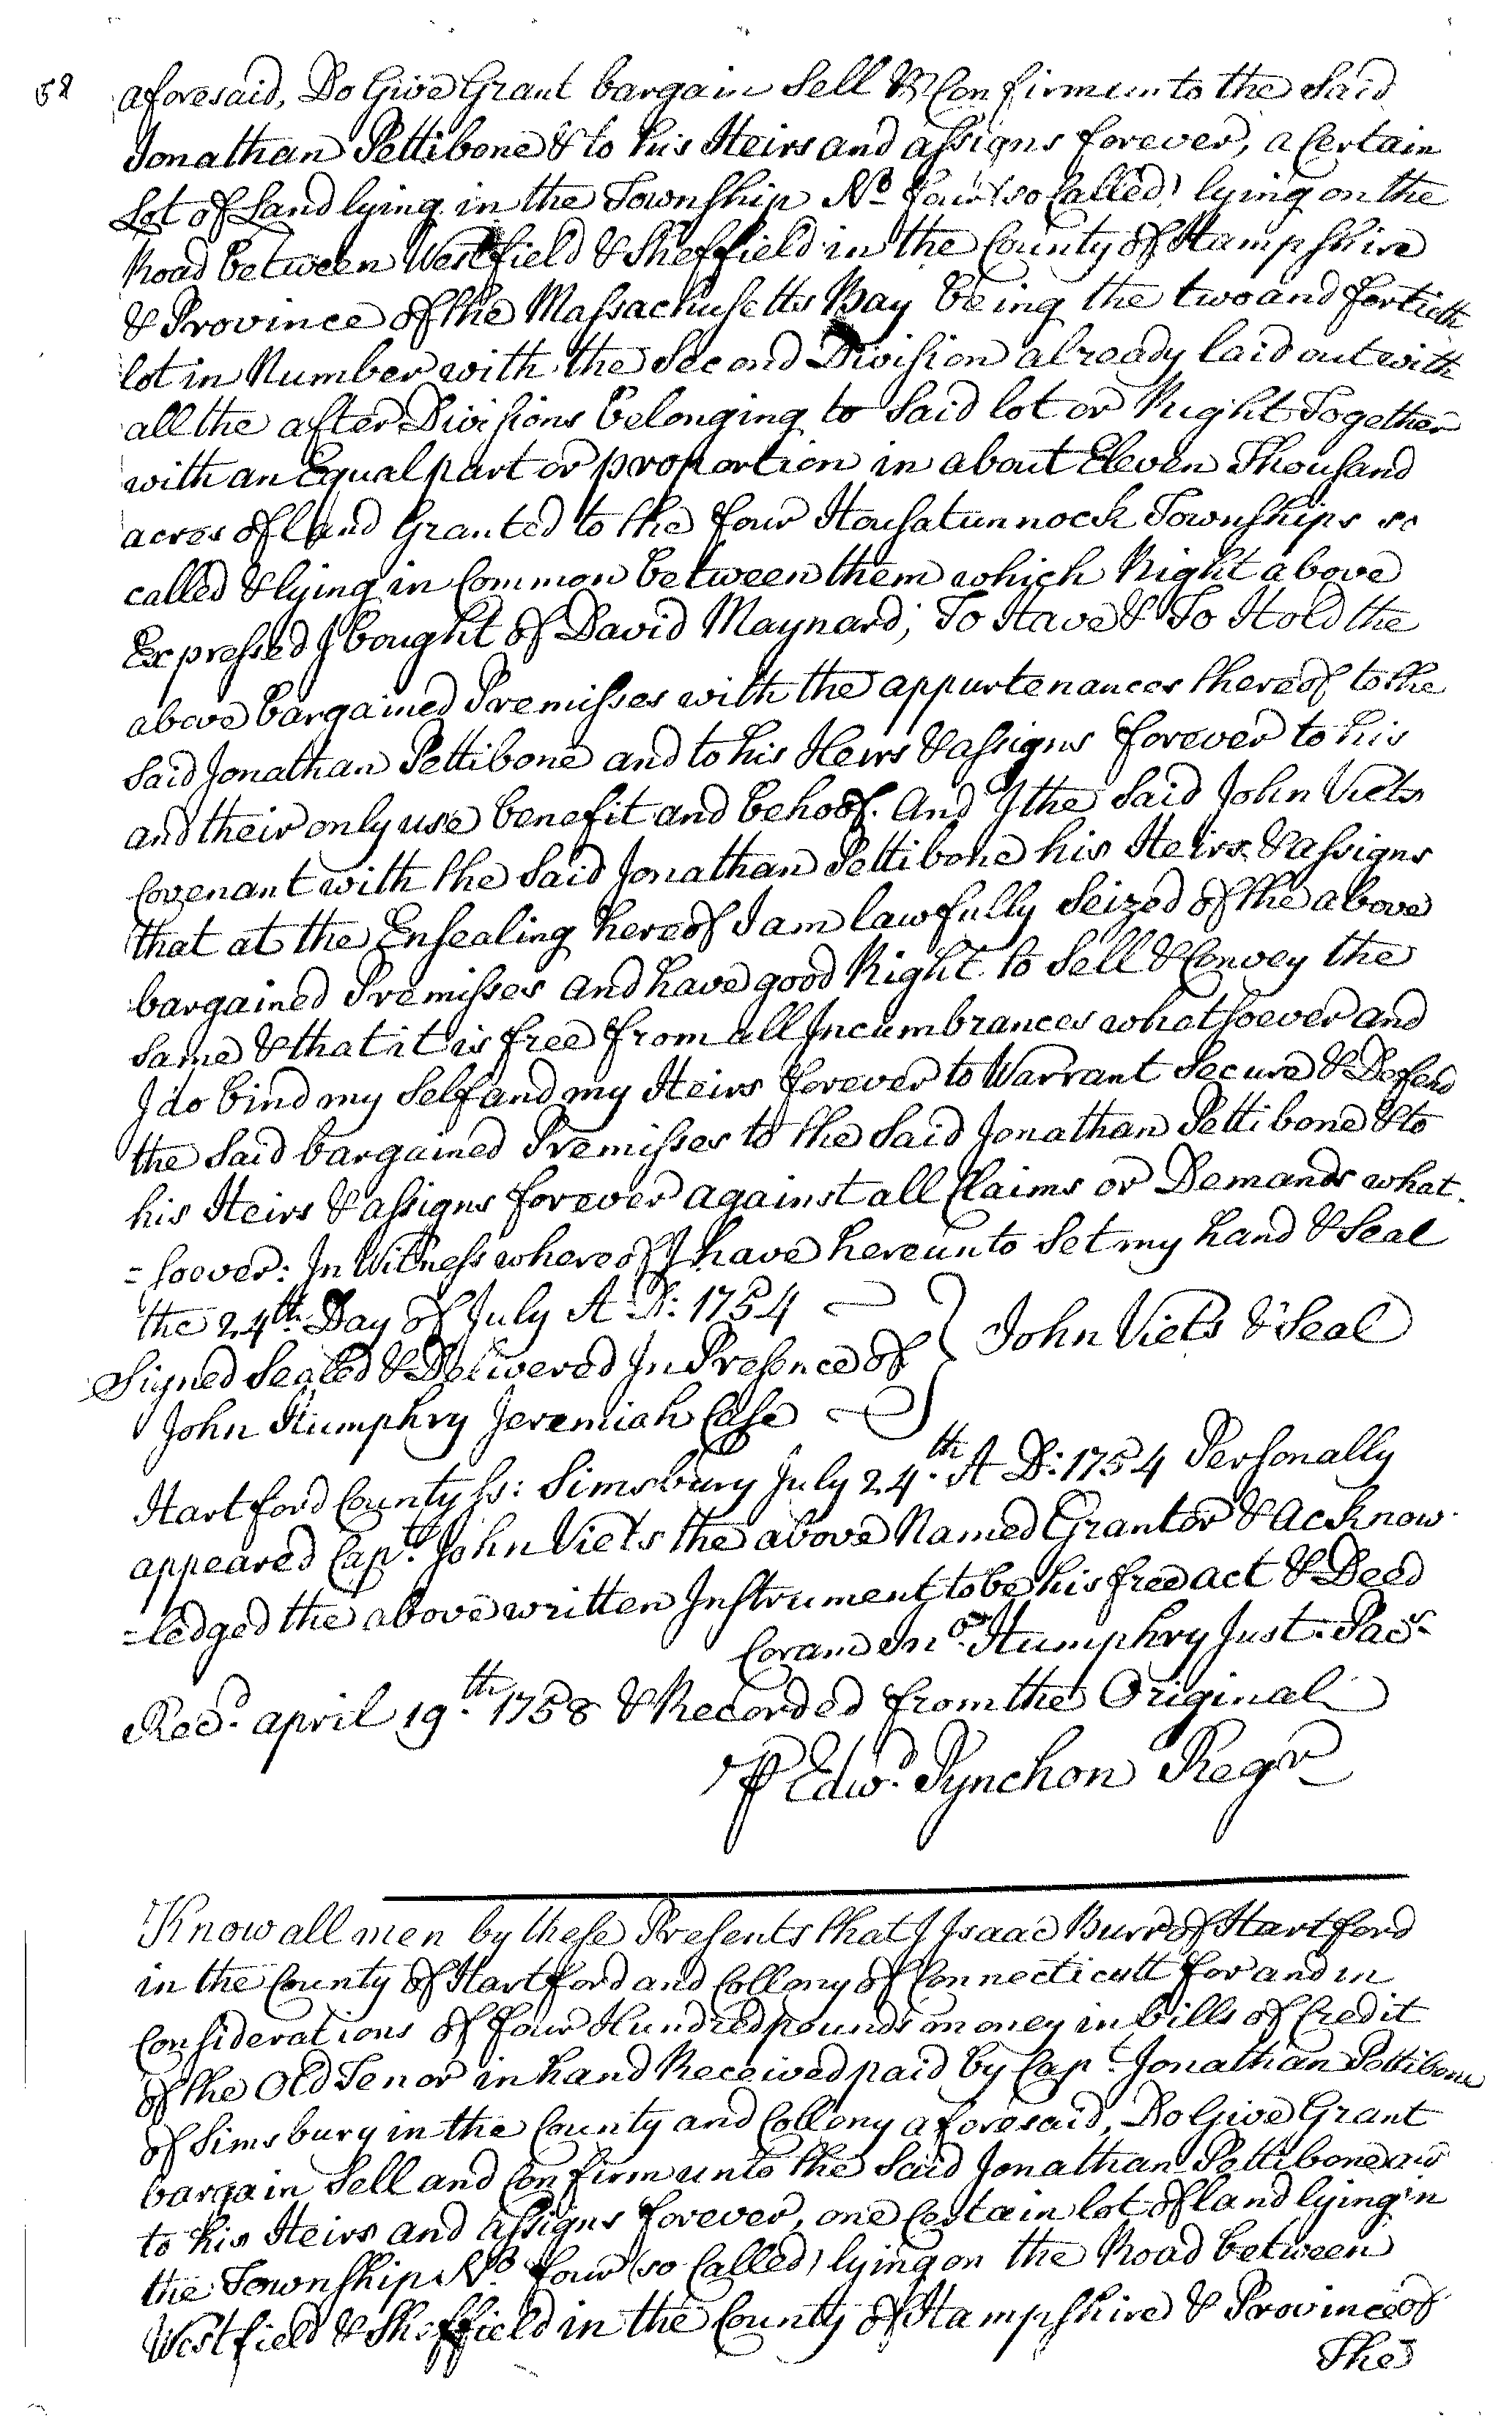 52
aforesaid, Do Give Grant bargain Sell & Confirm unto the Said
Jonathan Pettibone & to his Heirs and assigns forever, a Certain
Lot of Land lying in the Township No. four (so Called) lying on the
Road between Westfield & Sheffield in the County of Hampshire
& Province of the Massachusetts Bay being the two and fortieth
lot in Number with the Second Division already laid out with
all the after Divisions belonging to Said lot or Right Together
with an Equal part or proportion in about Eleven Thousand
acres of land Granted to the four Housatunnock Townships so
called & lying in Common between them which Right above
Expressed I bought of David Maynard; To Have & To Hold the
above bargained Premisses with the appurtenances thereof to the
Said Jonathan Pettibone and to his Heirs & assigns forever to his
and their only use benefit and behoof. And I the Said John Viets
Covenant with the Said Jonathan Pettibone his Heirs & assigns
that at the Ensealing hereof I am lawfully Seized of the above
bargained Premisses and have good Right to Sell & Convey the
Same & that it is free from all Incumbrances whatsoever and
I do bind my Self and my Heirs forever to Warrant Secure & Defend
the Said bargained Premisses to the Said Jonathan Pettibone & to
his Heirs & assigns forever against all Claims or Demands what-
=soever: In Witness whereof I have hereunto Set my hand & Seal
the 24th. Day of July A D: 1754
Signed Sealed & Delivered In Presence of } John Viets & Seal
John Humphry Jeremiah Case
Hartford County ss: Simsbury July 24.th A D: 1754 Personally
appeared Capt. John Viets the above Named Grantor & Acknow-
=ledged the above written Instrument to be his free act & Deed
Coram Jno. Humphry Just. Pacs.
Recd. april 19.th 1758 & Recorded from the Original
⅌ Edwd. Pynchon Regr
Know all men by these Presents that I Isaac Burr of Hartford
in the County of Hartford and Collony of Connecticutt for and in
Considerations of four Hundred pounds money in bills of Credit
of the Old Tenor in hand Received paid by Capt. Jonathan Pettibone
of Simsbury in the County and Collony aforesaid, Do Give Grant
bargain Sell and Confirm unto the Said Jonathan Pettibone and
to his Heirs and assigns forever, one Certain lot of land lying in
the Township No. four (so Called) lying on the Road between
Westfield & Sheffield in the County of Hampshire & Province of
The